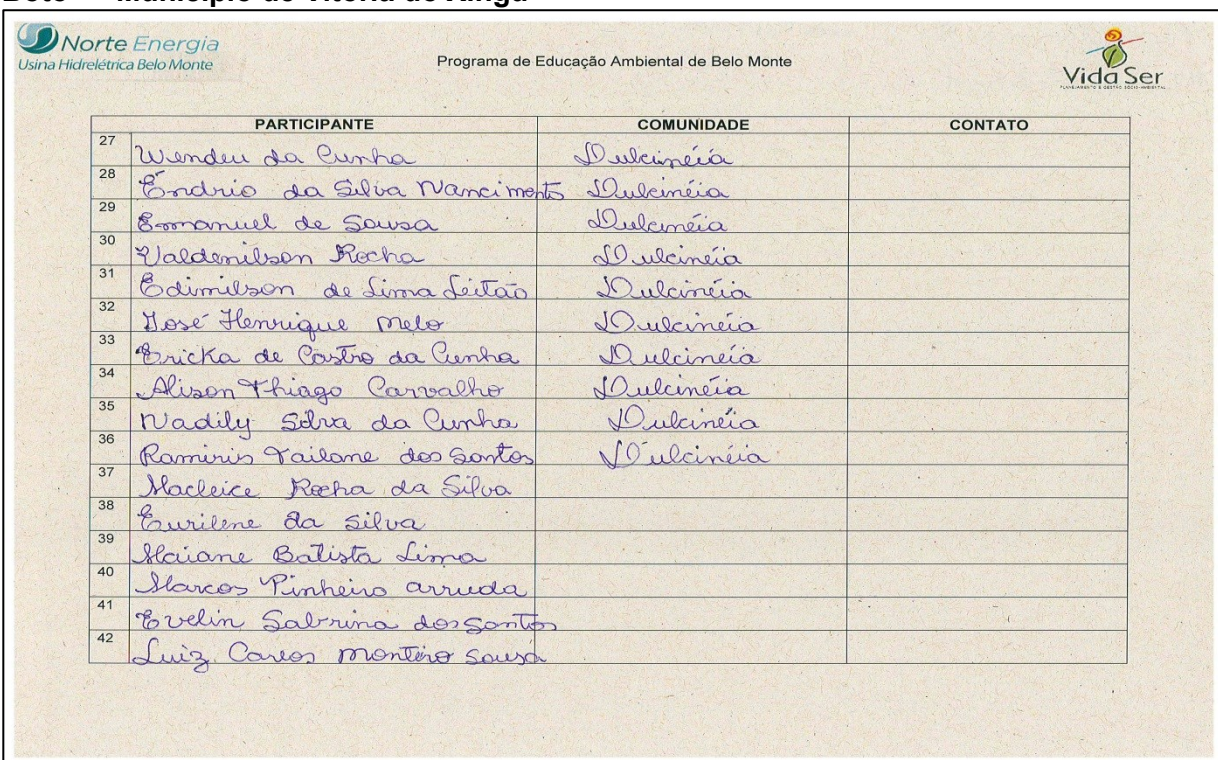 Norte Energia
Usina Hidrelétrica Belo Monte
Programa de Educação Ambiental de Belo Monte
Vida Ser
PLANEJAMENTO E GESTÃO SÓCIO-AMBIENTAL
PARTICIPANTE COMUNIDADE CONTATO
27 Wendeu da Cunha Dulcinéia
28 Éndrio da Silva Nancimento Dulcinéia
29 Emanuel de Sousa Dulcinéia
30 Valdenilson Rocha Dulcinéia
31 Edimilson de Lima Leitão Dulcinéia
32 José Henrique Melo Dulcinéia
33 Ericka de Castro da Cunha Dulcinéia
34 Alison Thiago Carvalho Dulcinéia
35 Nadily Silva da Cunha Dulcinéia
36 Ramiris Tailane dos Santos Dulcinéia
37 Macleice Rocha da Silva
38 Eurilene da Silva
39 Maiane Batista Lima
40 Marcos Pinheiro arruda
41 Evelin Sabrina dos Santos
42 Luiz Carlos Monteiro Sousa